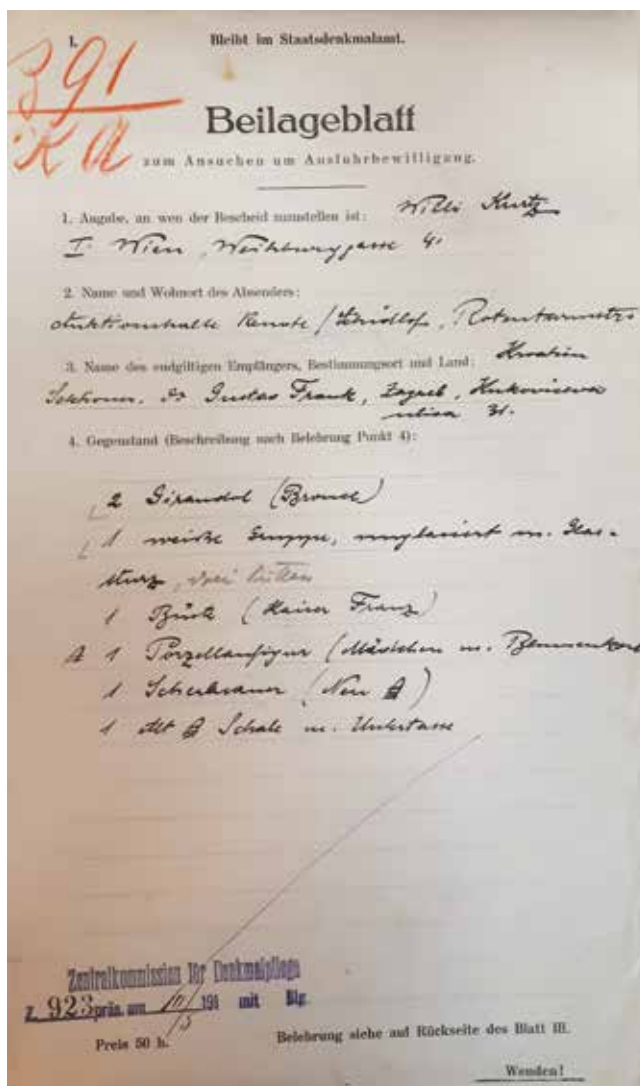 1.
Bleibt im Staatsdenkmalamt.
391
K A
Beilageblatt
zum Ansuchen um Ausfuhrbewilligung.
1. Angabe, an wen der Bescheid zuzustellen ist: Willi Kurtz
I. Wien, Weihburggasse 4.
2. Name und Wohnort des Absenders:
Auktionshalle Rotenturmstr.
3. Name des endgiltigen Empfängers, Bestimmungsort und Land: Kroatien
Dr Gustav Frank, Zagreb,
ulica 31.
4. Gegenstand (Beschreibung nach Belehrung Punkt 4):
2 Girandol (Bronce)
1 weiße Gruppe, unglasiert m. Glas-
sturz, drei
1 Büste (Kaiser Franz)
A 1 Porzellanfigur (Mädchen m. Blumenkorb
1 (Neu
1 Alt Schale m. Untertasse
Zentralkommission für Denkmalpflege
Z. 923 präs. am 191 mit Blg.
Preis 50 h.
Belehrung siehe auf Rückseite des Blatt III.
Wenden!